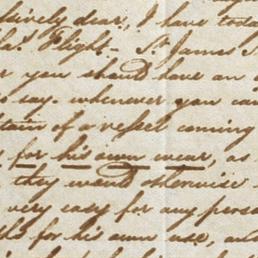 sively dear, I have toda
has. Flight - St. James S
r you should have an o
s say. whenever you can
tain of a vessel coming
for his own wear, as
they would otherwise
very easy for any perso
for his own use, and